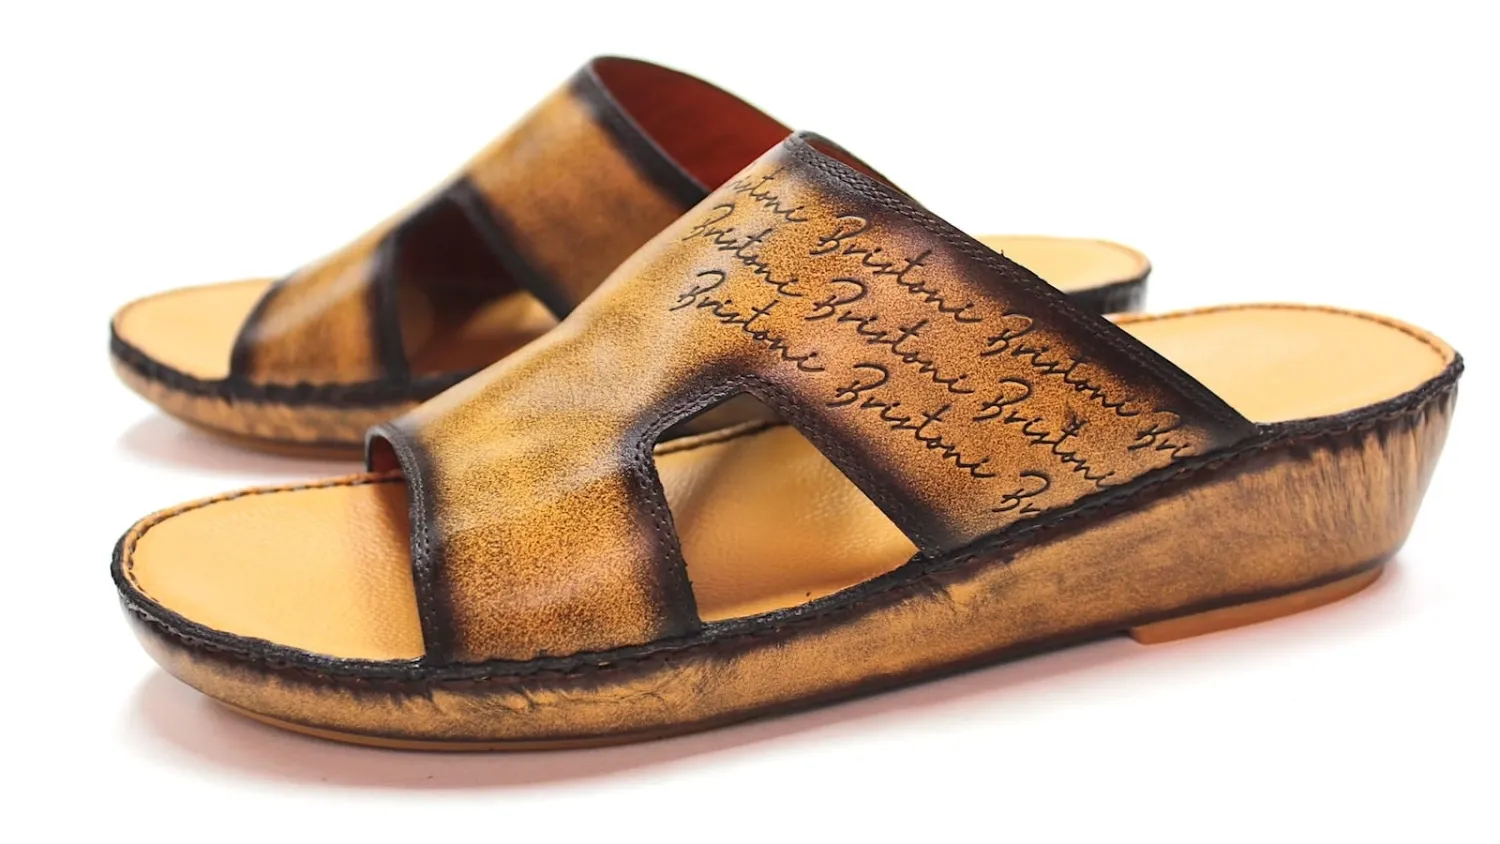 ristoni Bristoni Bristoni Bri
Bristoni Bristoni Bristoni
Bristoni Bristoni Bri